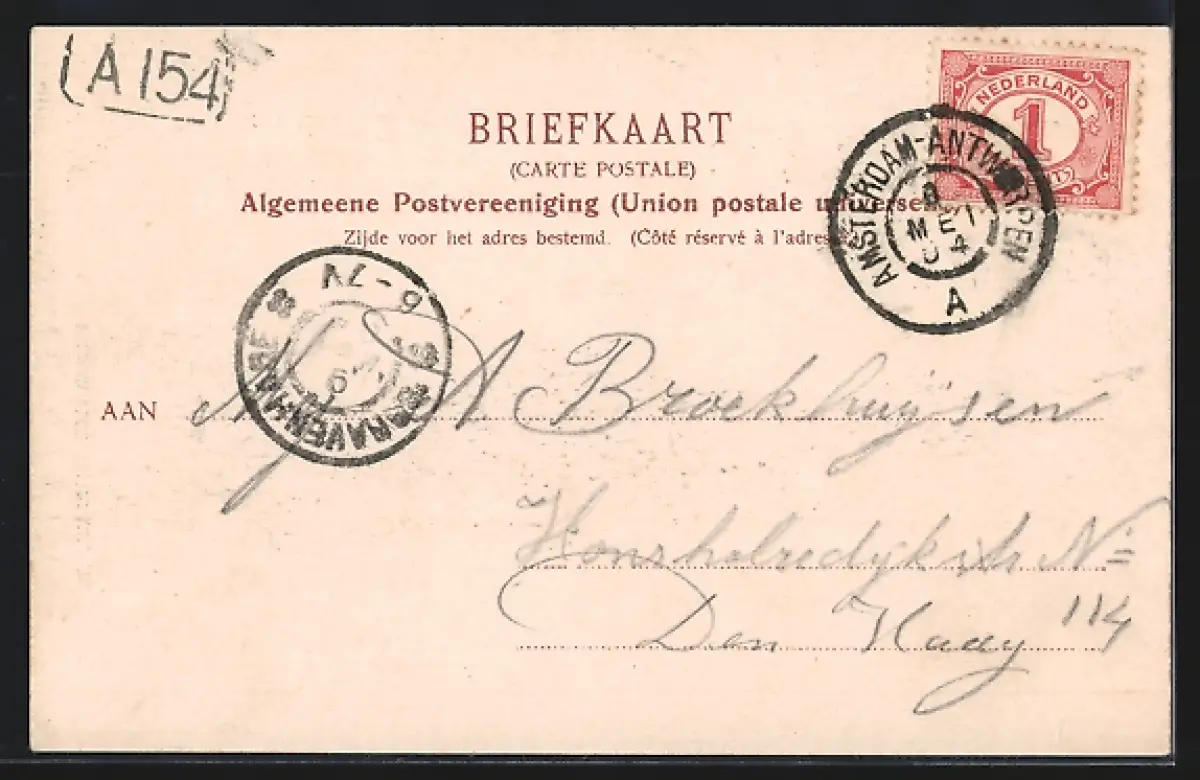 (A 154)
NEDERLAND
1
BRIEFKAART
(CARTE POSTALE)
Algemeene Postvereeniging (Union postale universe
Zijde voor het adres bestemd. (Côté réservé à l'adres
AMSTERDAM-ANTWERPEN
8 MEI 04
A
6-7V
'SGRAVENHAGE
AAN A Broekhuijsen
Honsholredijkstr No
114
Den Haag